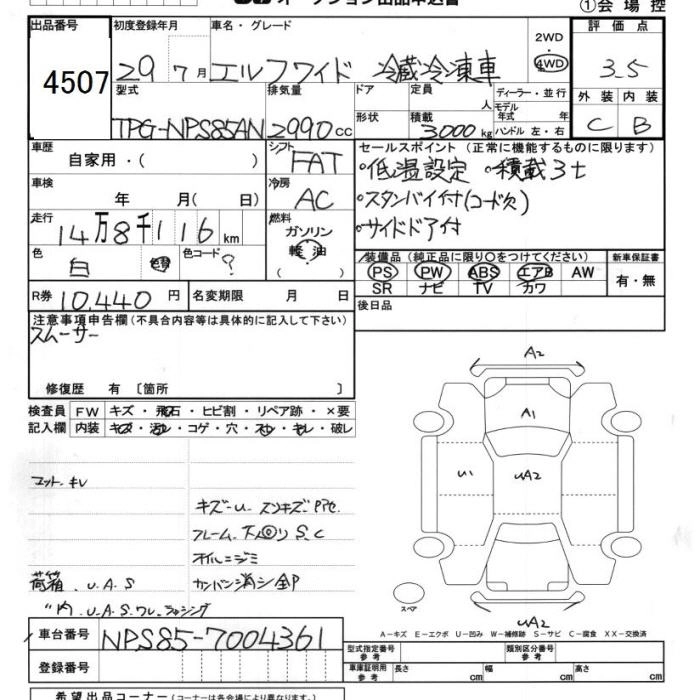 オークション出品申込書
①会場控
出品番号
4507
初度登録年月
29 7月
車名・グレード
エルフワイド 冷蔵冷凍車
2WD
4WD
評価点
3.5
外装 内装
C B
型式
TPG-NPS85AN
排気量
2990cc
ドア
形状
定員
人
積載
3000kg
ディーラー・並行
モデル
年式 年
ハンドル 左・右
車歴
自家用・( )
シフト
FAT
車検
年 月( 日)
冷房
AC
走行
14万8千116km
燃料
ガソリン
軽油
( )
色
白
色替
色コード
?
R券
10,440円
名変期限 月 日
セールスポイント (正常に機能するものに限ります)
・低温設定 ・積載3t
・スタンバイ付(コード欠)
・サイドドア付
装備品 (純正品に限り○をつけてください)
PS PW ABS エアB AW
SR ナビ TV カワ
新車保証書
有・無
後日品
注意事項申告欄 (不具合内容等は具体的に記入して下さい)
スムーサー
修復歴 有 〔箇所 〕
検査員
記入欄
FW キズ・飛石・ヒビ割・リペア跡・×要
内装 キズ・汚レ・コゲ・穴・スレ・キレ・破レ
キズ-U.
フレーム.
S.C
オイルニジミ
荷箱 . U.A.S
カンバン消シ全P
〃内 . U.A.S.ワレ.
A2
A1
U1
UA2
スペア
UA2
A-キズ E-エクボ U-凹み W-補修跡 S-サビ C-腐食 XX-交換済
車台番号
NPS85-7004361
登録番号
型式指定番号
参考
類別区分番号
参考
車庫証明用
参考
長さ cm 幅 cm 高さ cm
希望出品コーナー (コーナーは各会場により異なります)